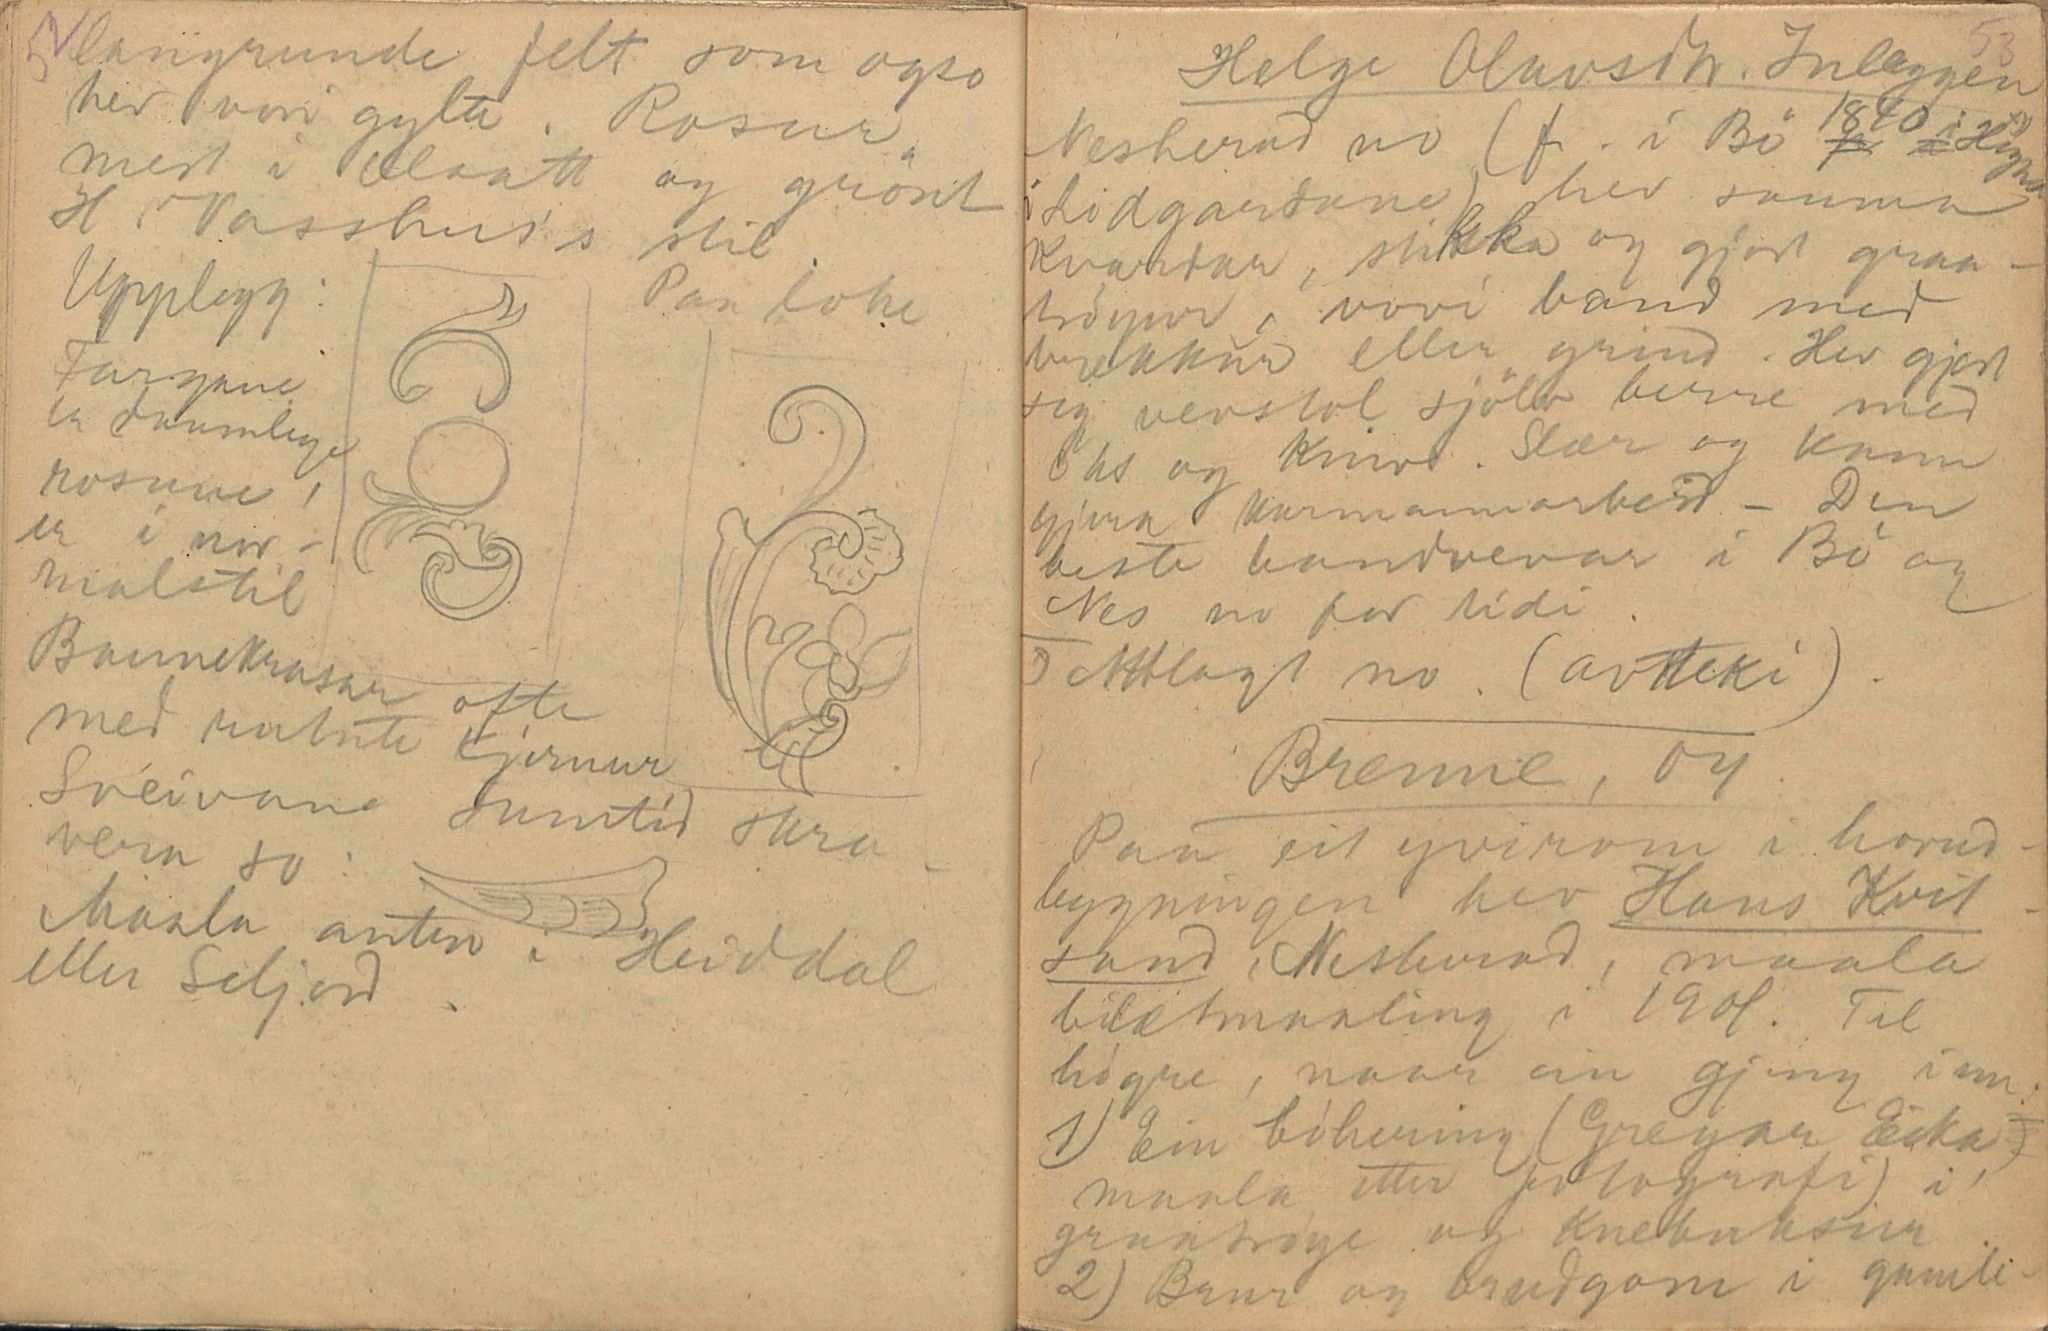 52
langrunde felt som ogso
hev vori gylte. Rosur
mest i blaatt og grönt
H. Vasshus's stil.
Upplegg:
Paa loke
Fargane
er daamlege
rosune,
er i nor-
malstil
Baunekrasar ofte
med rutute kjernur
Sveivane sumtid skra-
vera so:
Maala anten i Heiddal
eller Seljord.
53
Helge Olavsdtr. Inleggjen
Nesherad no (f. i Bö 1840 i Hegna
i Lidgardane) hev sauma
Kvardar, stikka og gjort graa-
tröyur, vovi band med
brekkur eller grind. Hev gjort
seg vevstol sjölv berre med
öks og kniv. Slær og kann
gjera karmannarbeid - Den
beste bandvevar i Bö og
Nes no for tidi.
Nedlagt no. (avteki).
Brenne, Oy.
Paa eit yvirom i hovud-
bygningen hev Hans Kvit-
sand, Nesherad, maala
biletmaaling i 1901. Til
högre, naar ein gjeng inn:
1) Ein böhering (Gregar Eika,
maala etter fotografi) i
graatröye og knebuksur.
2) Brur og brudgom i gamli-